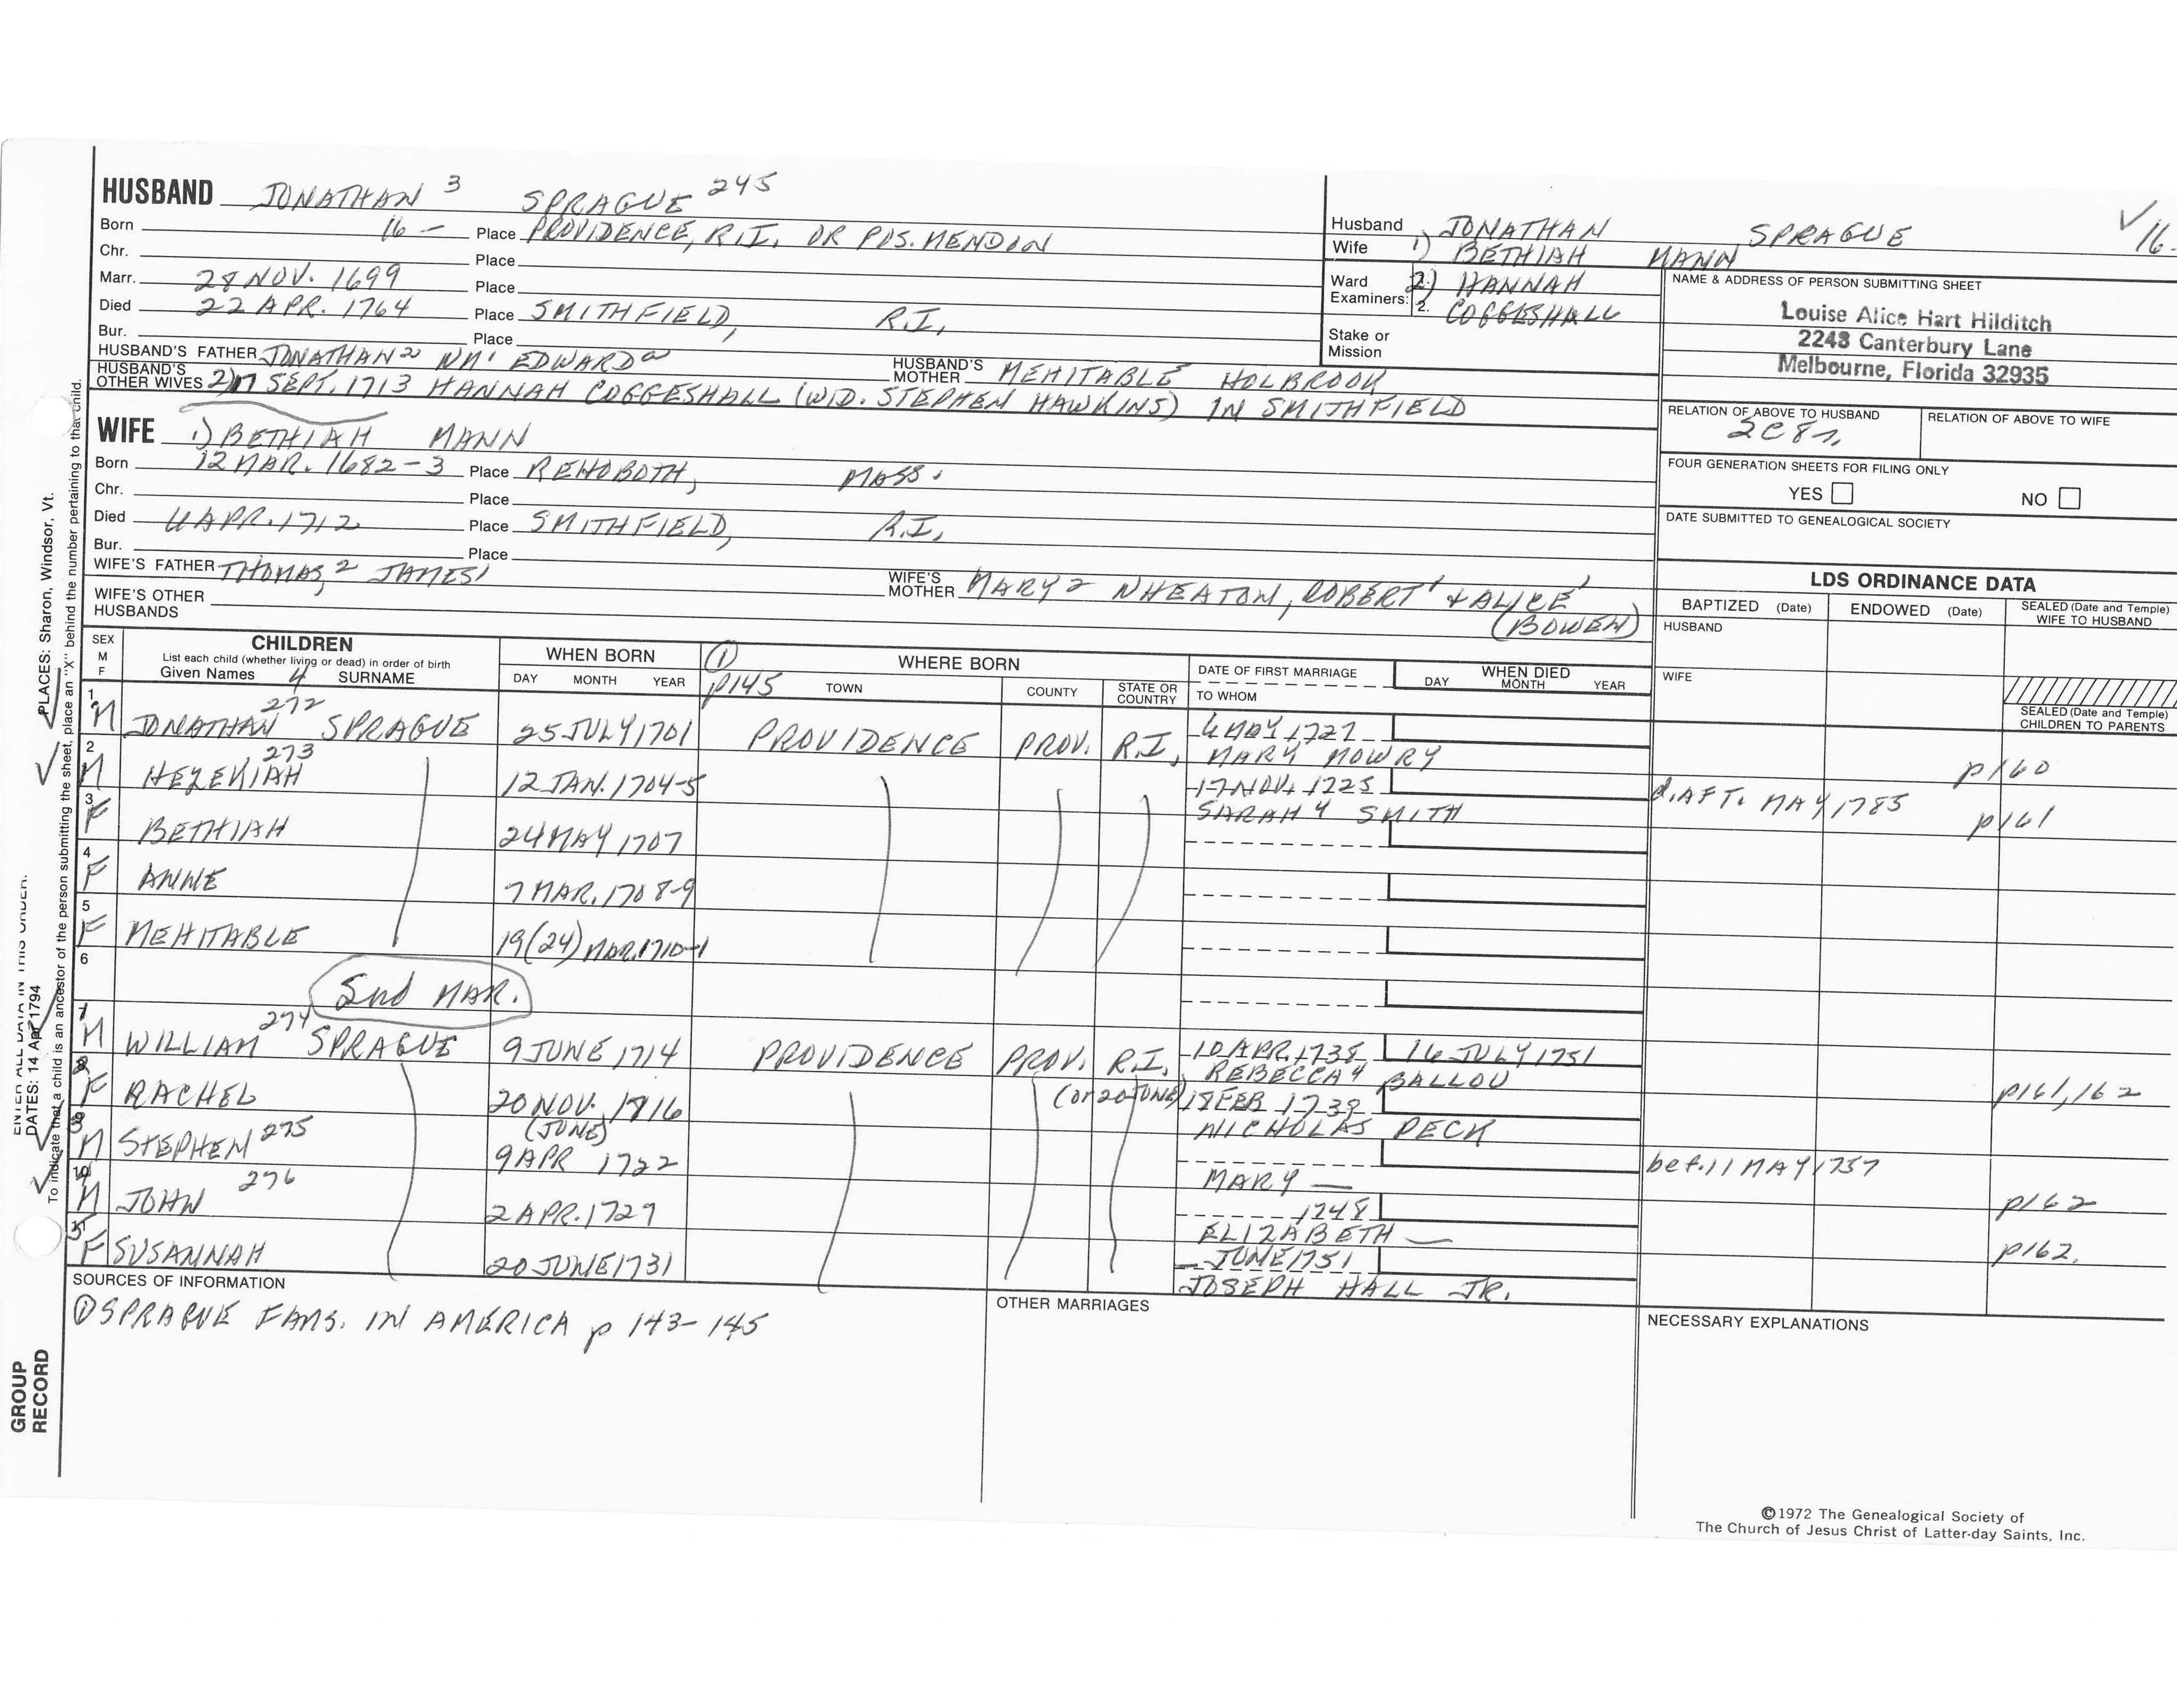 HUSBAND JONATHAN 3 SPRAGUE 245
Born 16 — Place PROVIDENCE, R.I. OR POS. MENDON
Chr. Place
Marr. 28 NOV. 1699 Place
Died 22 APR. 1764 Place SMITHFIELD, R.I.
Bur. Place
HUSBAND'S FATHER JONATHAN 2 WM 1 EDWARD a HUSBAND'S MOTHER MEHITABLE HOLBROOK
HUSBAND'S OTHER WIVES 2) 17 SEPT. 1713 HANNAH COGGESHALL (WID. STEPHEN HAWKINS) IN SMITHFIELD
WIFE 1) BETHIAH MANN
Born 12 MAR. 1682-3 Place REHOBOTH, MASS.
Chr. Place
Died APR. 1712 Place SMITHFIELD, R.I.
Bur. Place
WIFE'S FATHER THOMAS, 2 JAMES 1 WIFE'S MOTHER MARY 2 WHEATON, ROBERT 1 & ALICE 1
WIFE'S OTHER HUSBANDS (BOWEN)
Husband JONATHAN SPRAGUE ✓ 16-
Wife 1) BETHIAH MANN
Ward 2) HANNAH
Examiners: 2. COGGESHALL
Stake or Mission
NAME & ADDRESS OF PERSON SUBMITTING SHEET
Louise Alice Hart Hilditch
2248 Canterbury Lane
Melbourne, Florida 32935
RELATION OF ABOVE TO HUSBAND RELATION OF ABOVE TO WIFE
2C8r,
FOUR GENERATION SHEETS FOR FILING ONLY
YES NO
DATE SUBMITTED TO GENEALOGICAL SOCIETY
LDS ORDINANCE DATA
BAPTIZED (Date) ENDOWED (Date) SEALED (Date and Temple) WIFE TO HUSBAND
HUSBAND
WIFE
SEALED (Date and Temple) CHILDREN TO PARENTS
SEX M F CHILDREN WHEN BORN ① WHERE BORN DATE OF FIRST MARRIAGE WHEN DIED
List each child (whether living or dead) in order of birth
Given Names 4 SURNAME DAY MONTH YEAR p145 TOWN COUNTY STATE OR COUNTRY TO WHOM DAY MONTH YEAR
1 M JONATHAN 272 SPRAGUE 25 JULY 1701 PROVIDENCE PROV. R.I. 4 MAY 1727
MARY MOWRY p160
2 M HEZEKIAH 273 12 JAN. 1704-5 17 NOV. 1725 d. AFT. MAY 1783
SARAH 4 SMITH p161
3 F BETHIAH 24 MAY 1707
4 F ANNE 7 MAR. 1708-9
5 F MEHITABLE 19(24) MAR. 1710-1
6 2nd MAR.
7 M WILLIAM 274 SPRAGUE 9 JUNE 1714 PROVIDENCE PROV. R.I. 10 APR. 1738 16 JULY 1751
REBECCA 4 BALLOU p161, 162
8 F RACHEL 20 NOV. 1716 (JUNE) (or 20 JUNE) 18 FEB 1739
NICHOLAS PECK
9 M STEPHEN 275 9 APR 1722 bef. 11 MAY 1757
MARY — p162
10 M JOHN 276 2 APR. 1729 1748
ELIZABETH — p162.
F SUSANNAH 20 JUNE 1731 — JUNE 1751
JOSEPH HALL JR.
SOURCES OF INFORMATION OTHER MARRIAGES NECESSARY EXPLANATIONS
① SPRAGUE FAMS. IN AMERICA p 143-145
©1972 The Genealogical Society of
The Church of Jesus Christ of Latter-day Saints, Inc.
DATES: 14 Apr 1794
PLACES: Sharon, Windsor, Vt.
To indicate that a child is an ancestor of the person submitting the sheet, place an "X" behind the number pertaining to that child.
GROUP
RECORD